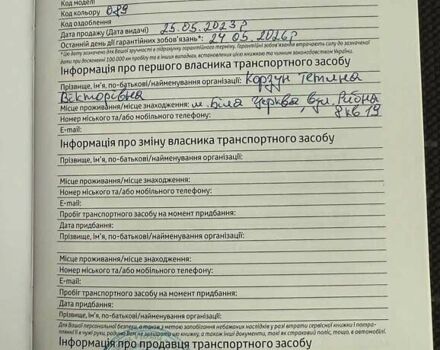 Код моделі
Код кольору 089
Код оздоблення
Дата продажу (Дата видачі) 25.05.2023 р
Останній день дії гарантійних зобов'язань*: 24.05.2026 р
*Цю дату зазначено для Вашої зручності в підрахунку гарантійного терміну. Гарантійні зобов'язання втрачають силу до зазначеної
дати при досягненні 100 000 км пробігу та в інших випадках, встановлених цією сервісною книжкою та чинним законодавством України.
Інформація про першого власника транспортного засобу
Прізвище, ім'я, по-батькові/найменування організації: Корзун Тетяна
Вікторівна
Місце проживання/місце знаходження: м. Біла Церква, вул. Рибна
Номер міського та/або мобільного телефону: 8 кв 19
E-mail:
Інформація про зміну власника транспортного засобу
Прізвище, ім'я, по-батькові/найменування організації:
Місце проживання/місце знаходження:
Номер міського та/або мобільного телефону:
E-mail:
Пробіг транспортного засобу на момент придбання:
Дата придбання:
Прізвище, ім'я, по-батькові/найменування організації:
Місце проживання/місце знаходження:
Номер міського та/або мобільного телефону:
E-mail:
Пробіг транспортного засобу на момент придбання:
Дата придбання:
Прізвище, ім'я, по-батькові/найменування організації:
Для Вашої персональної безпеки, а також з метою запобігання небажаних наслідків у разі втрати сервісної книжки і потрап-
ляння її в чужі руки, радимо Вам не залишати книжку, а також інші документи, такі як страховий поліс, тощо, в автомобілі.
Інформація про продавця транспортного засобу